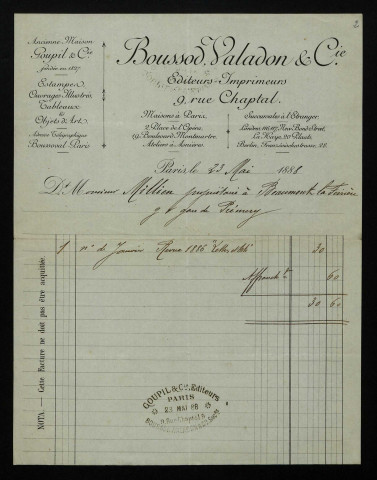 2
Ancienne Maison
Goupil & Cie
fondée en 1827
Estampes
Ouvrages Illustrés
Tableaux
&
Objets de Art
Adresse Télégraphique
Boussoval-Paris
Boussod, Valadon & Cie
Editeurs-Imprimeurs
9, rue Chaptal.
Maisons à Paris
2, Place de l'Opéra
19, Boulevard Montmartre
Ateliers à Asnières
Succursales à l'Étranger
Londres 116,117, New Bond Street
La Haye, 20 Plaats
Berlin, Französischestrasse
Paris le 23 Mai 1888
Dt Monsieur Millien propriétaire à Beaumont la Ferrière
gare de Prémery
1 no de Janvier Revue 1886 30
Affrancht 60
30 60
NOTA. — Cette Facture ne doit pas être acquittée.
GOUPIL & Cie. Editeurs
PARIS
23 MAI 88
9, Rue Chaptal, 9